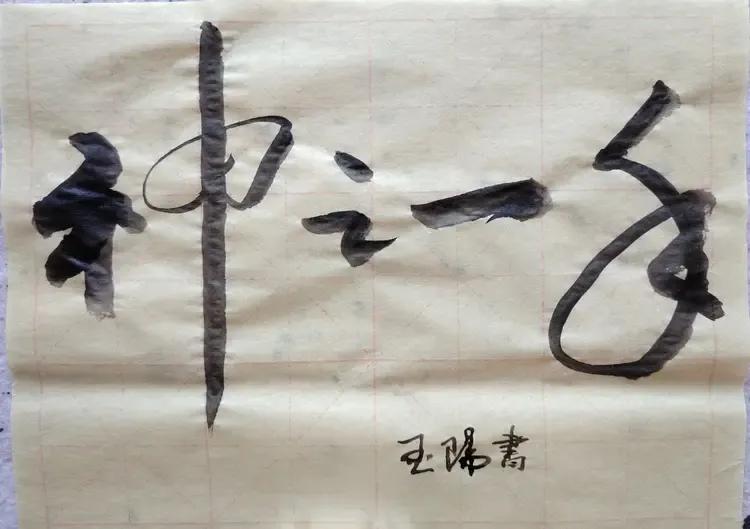 神之一手
玉陽書